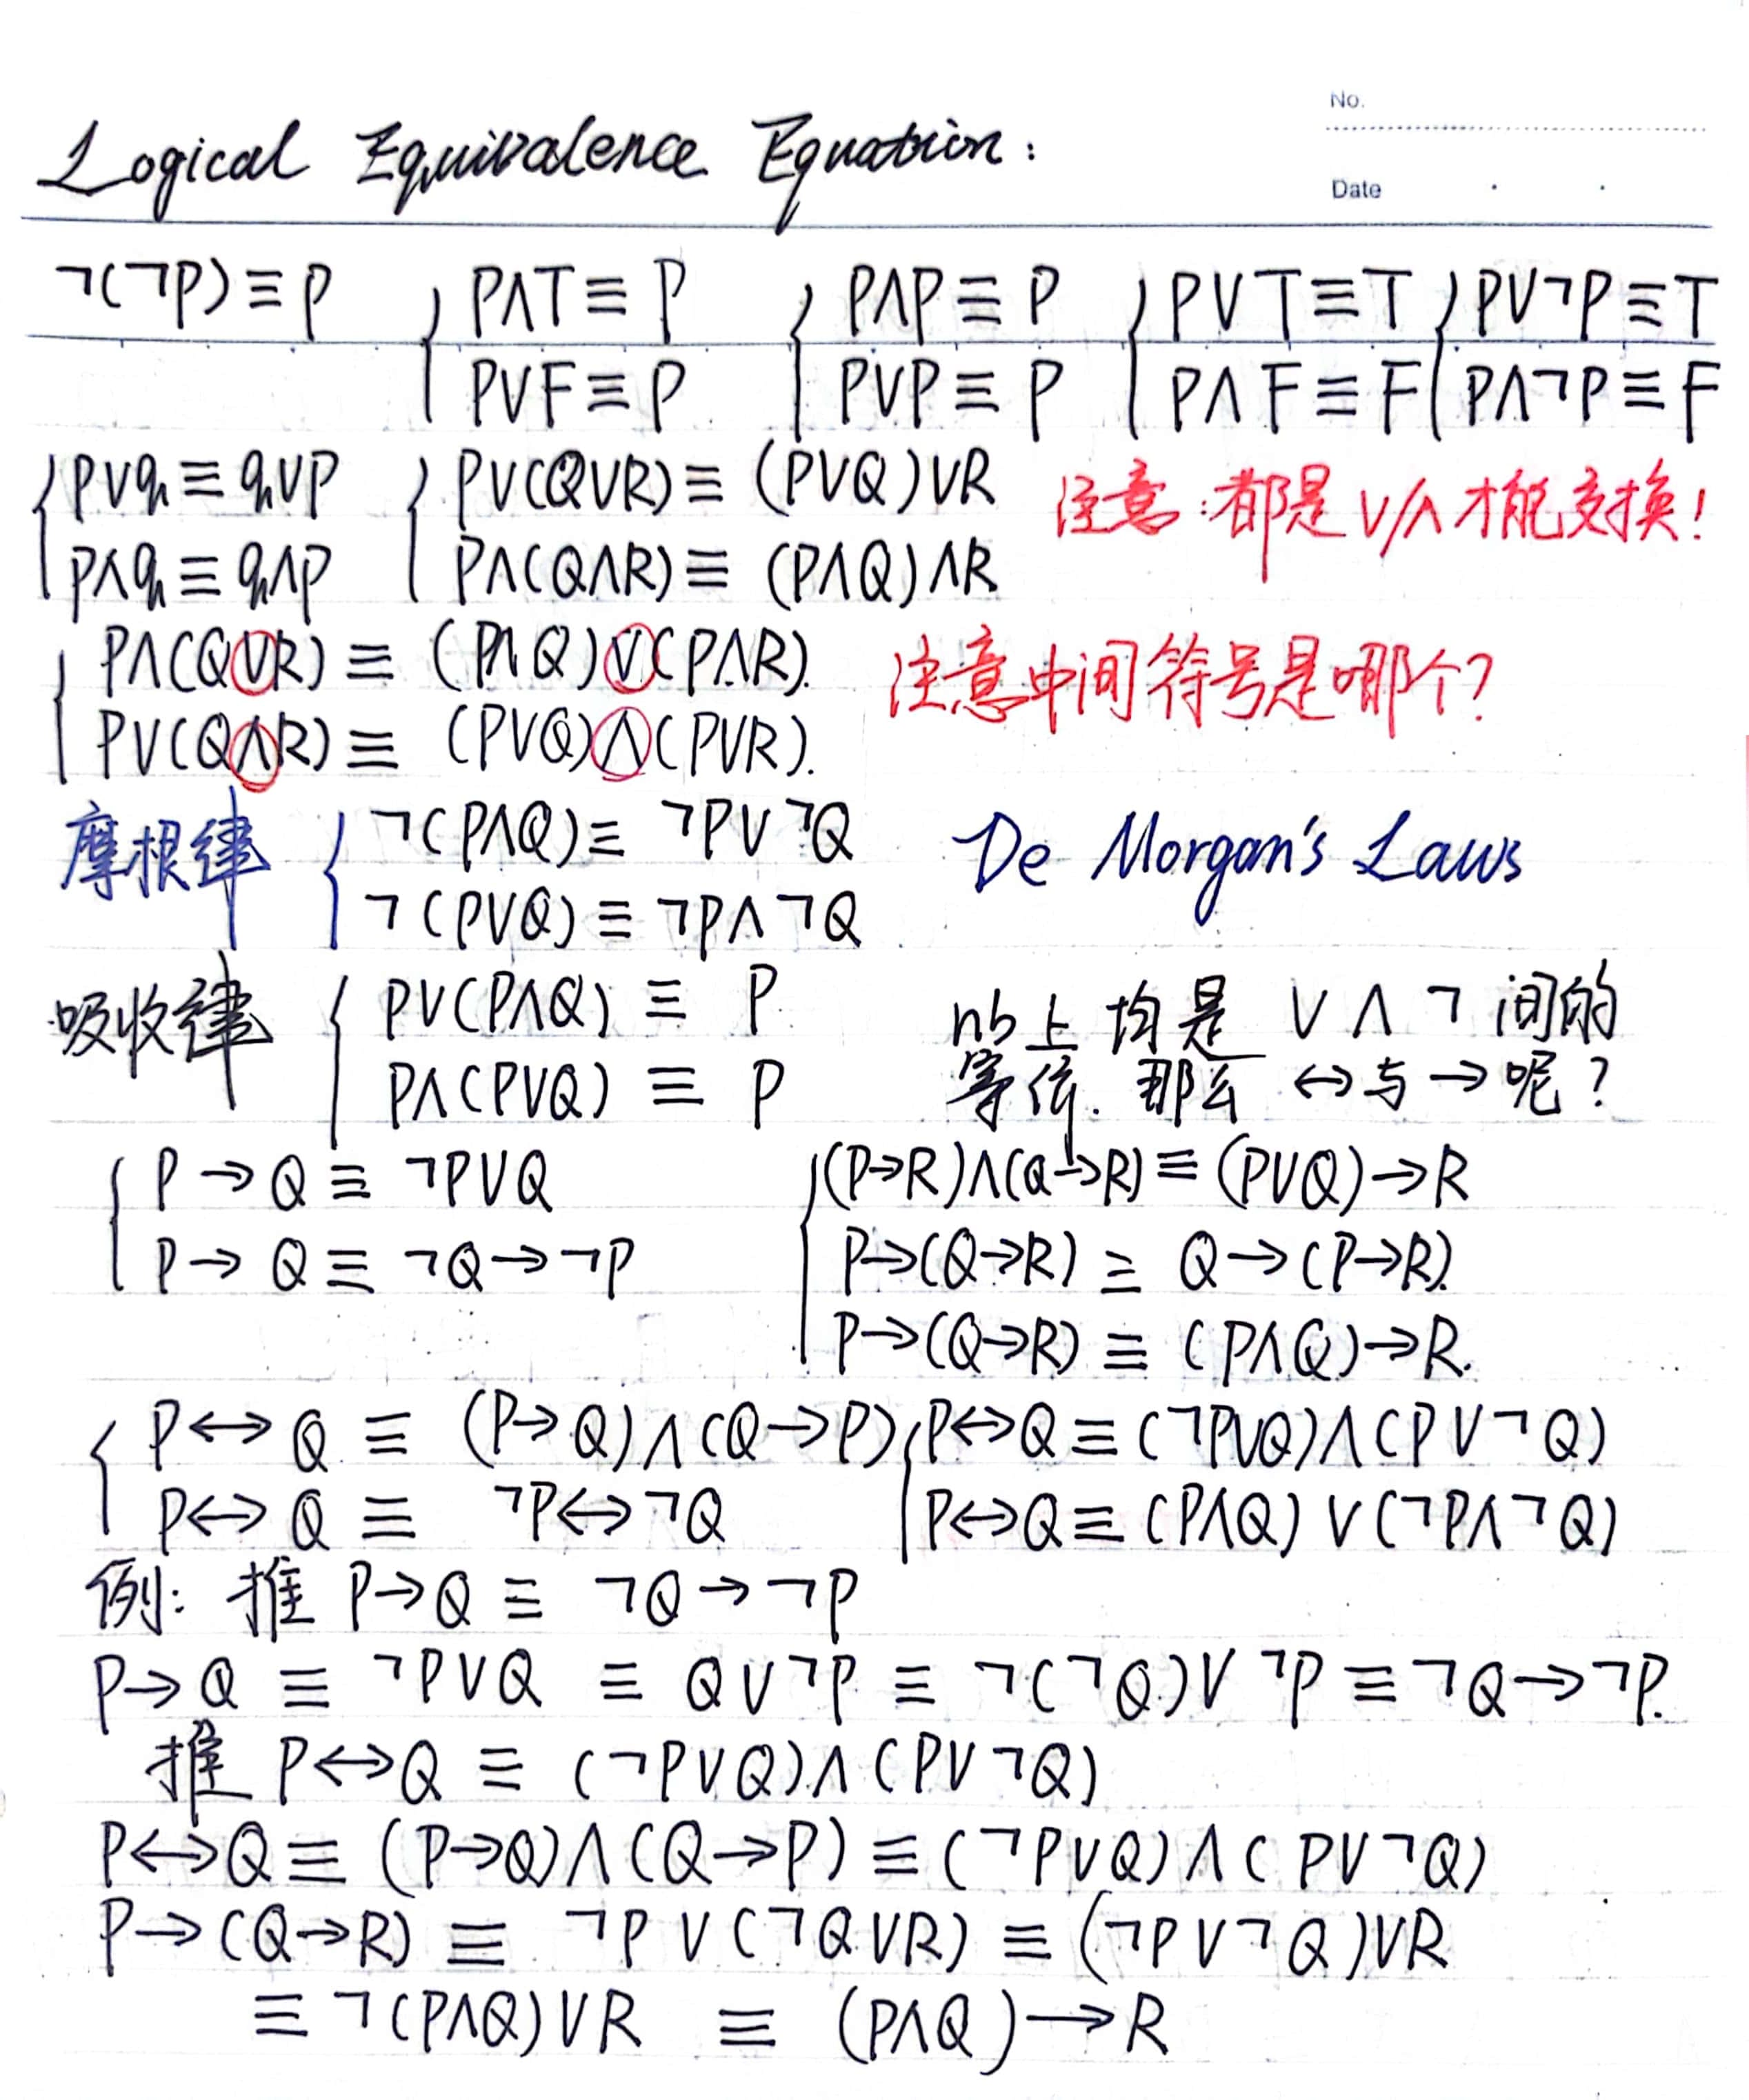 No.
Logical Equivalence Equation:
Date
¬(¬P)≡P { P∧T≡P { P∧P≡P { P∨T≡T { P∨¬P≡T
P∨F≡P P∨P≡P P∧F≡F P∧¬P≡F
{ p∨q≡q∨p { P∨(Q∨R)≡(P∨Q)∨R 注意:都是∨/∧才能交换!
p∧q≡q∧p P∧(Q∧R)≡(P∧Q)∧R
{ P∧(Q∨R)≡(P∧Q)∨(P∧R). 注意中间符号是哪个?
P∨(Q∧R)≡(P∨Q)∧(P∨R).
摩根律 { ¬(P∧Q)≡¬P∨¬Q De Morgan's Laws
¬(P∨Q)≡¬P∧¬Q
吸收律 { P∨(P∧Q)≡P 上均是∨∧¬间的
P∧(P∨Q)≡P 等价.那么↔与→呢?
{ P→Q≡¬P∨Q { (P→R)∧(Q→R)≡(P∨Q)→R
P→Q≡¬Q→¬P P→(Q→R)≡Q→(P→R).
P→(Q→R)≡(P∧Q)→R.
{ P↔Q≡(P→Q)∧(Q→P) { P↔Q≡(¬P∨Q)∧(P∨¬Q)
P↔Q≡¬P↔¬Q P↔Q≡(P∧Q)∨(¬P∧¬Q)
例:推 P→Q≡¬Q→¬P
P→Q≡¬P∨Q≡Q∨¬P≡¬(¬Q)∨¬P≡¬Q→¬P.
推 P↔Q≡(¬P∨Q)∧(P∨¬Q)
P↔Q≡(P→Q)∧(Q→P)≡(¬P∨Q)∧(P∨¬Q)
P→(Q→R)≡¬P∨(¬Q∨R)≡(¬P∨¬Q)∨R
≡¬(P∧Q)∨R≡(P∧Q)→R